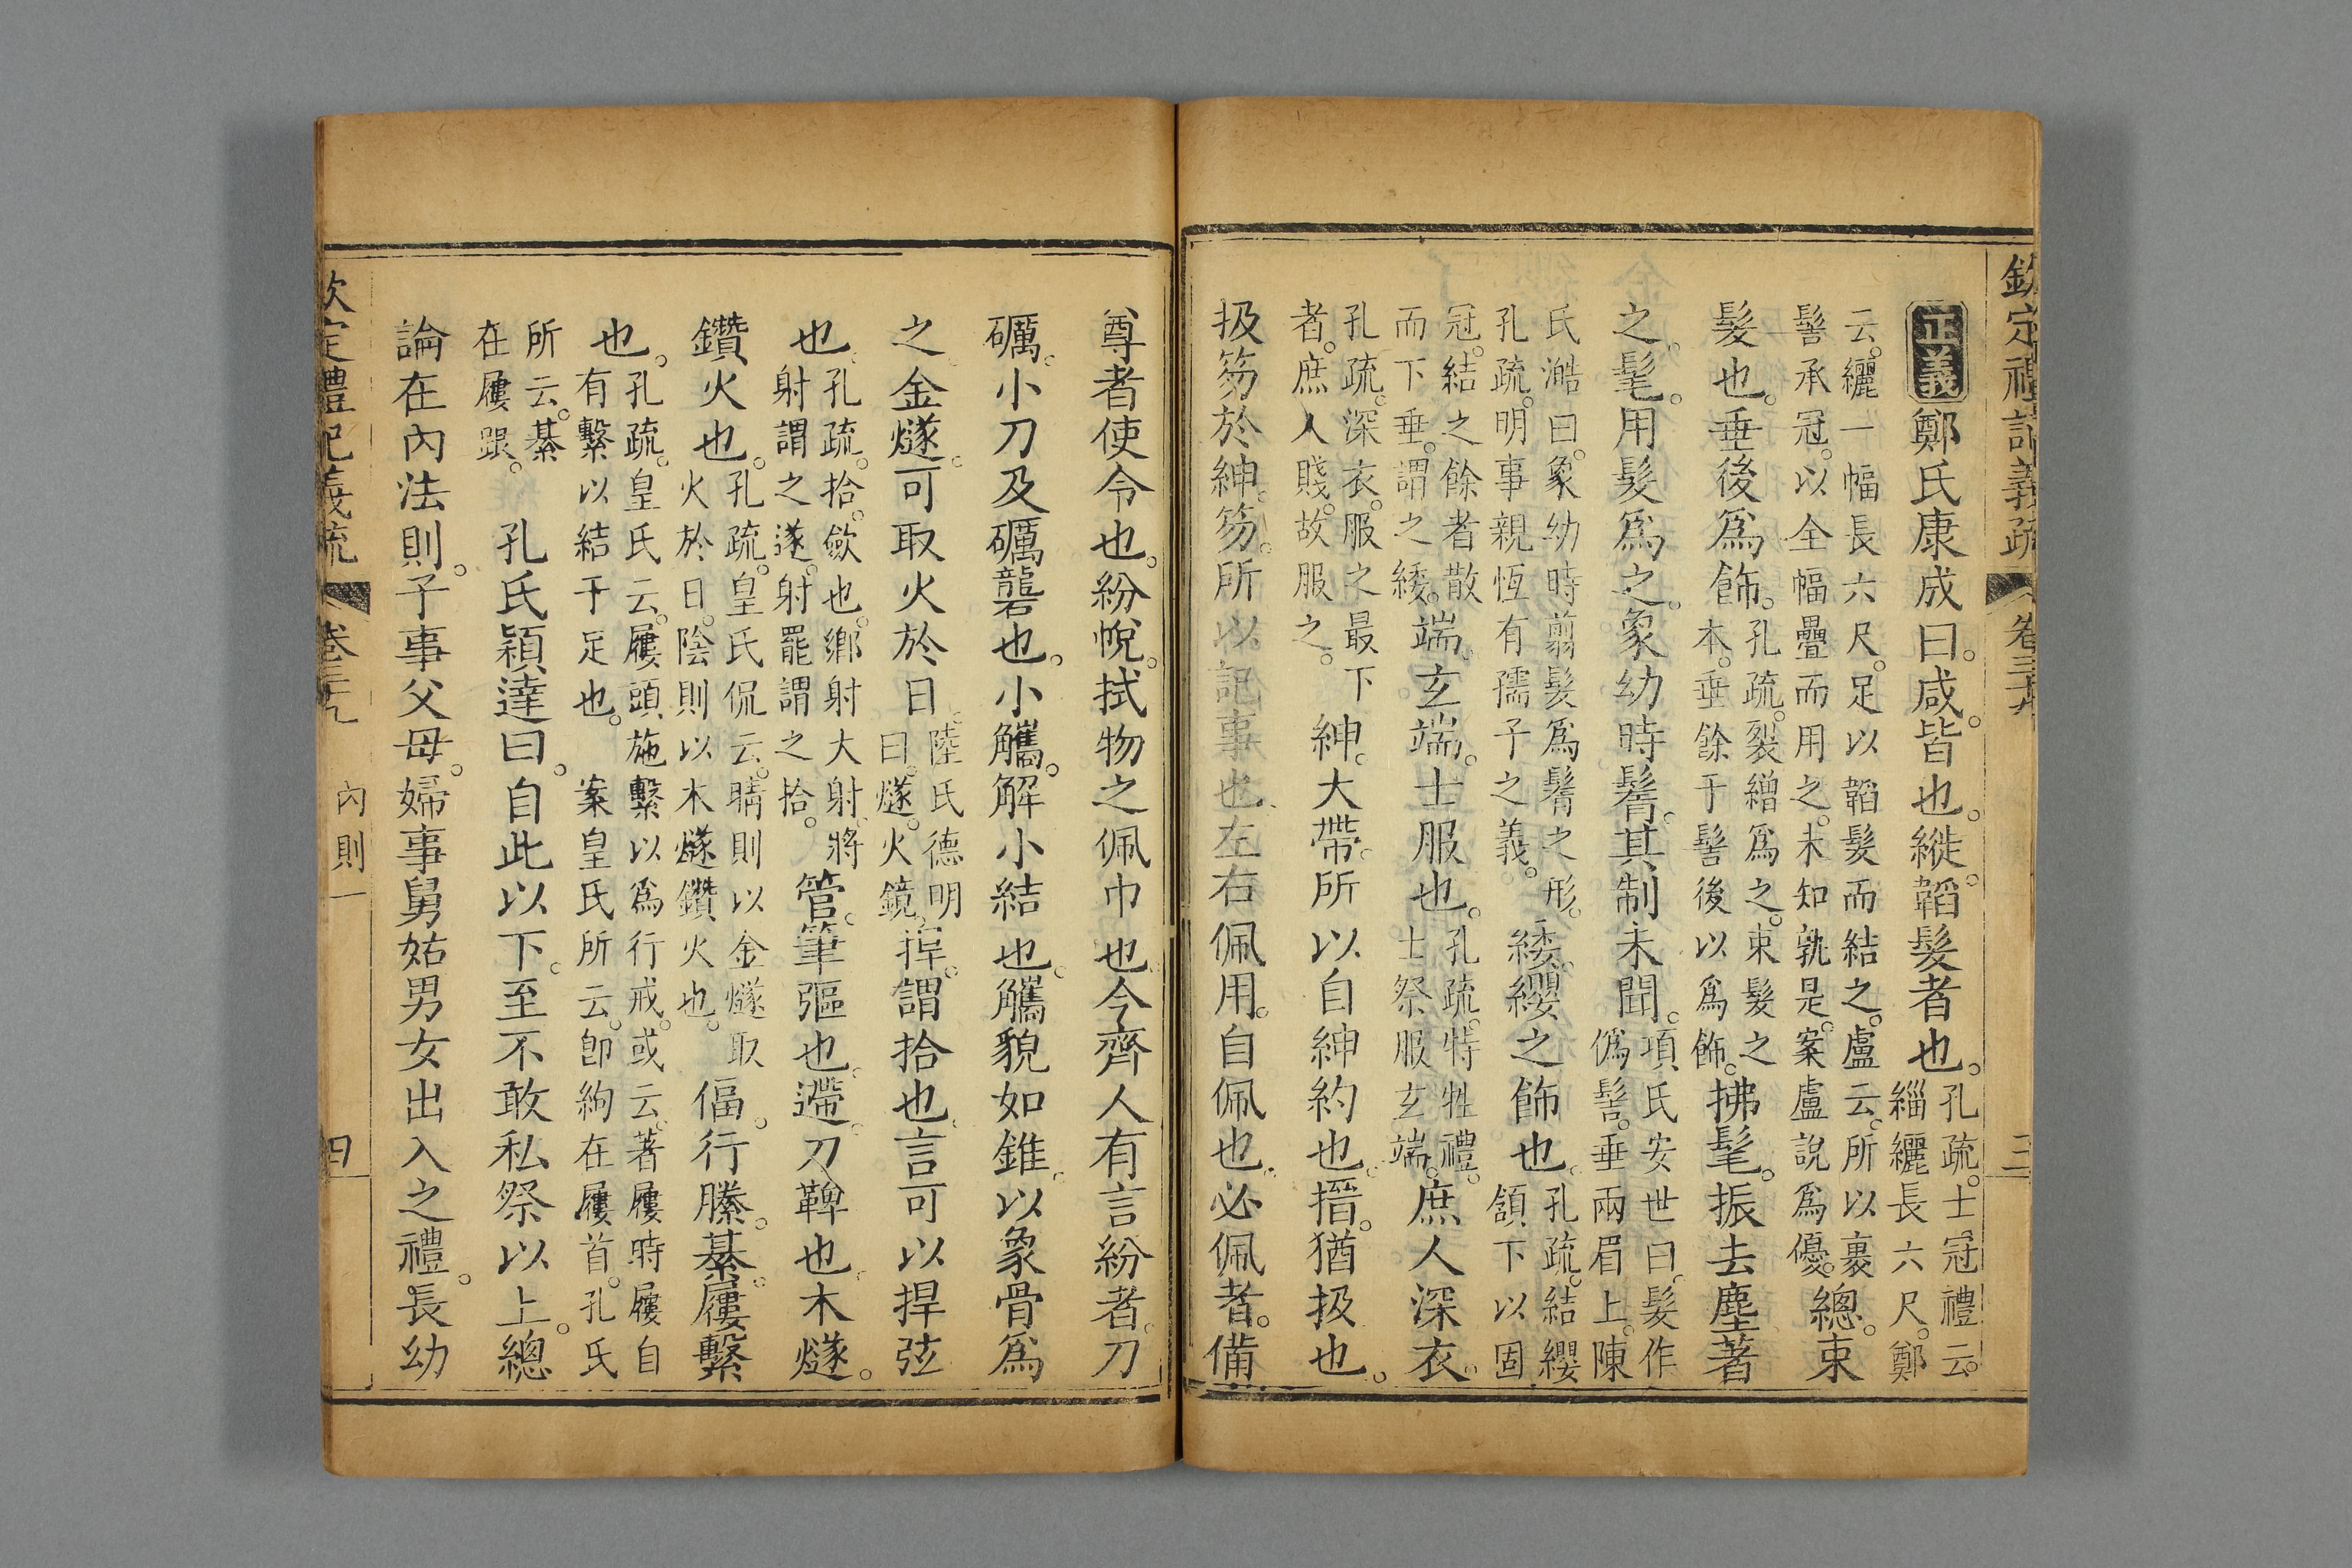 欽定禮記義疏 卷三十九 三
正義鄭氏康成曰。咸。皆也。縰。韜髮者也。孔疏。士冠禮云。緇纚長六尺。鄭
云。纚一幅長六尺。足以韜髮而結之。盧云。所以裹髻承冠。以全幅疊而用之。未知孰是。案盧說爲優。總。束
髮也。垂後爲飾。孔疏。裂繒爲之。束髮之本。垂餘于髻後以爲飾。拂髦。振去塵著
之。髦。用髮爲之。象幼時鬌。其制未聞。項氏安世曰。髮作僞髻。垂兩眉上。陳
氏澔曰。象幼時翦髮爲鬌之形。孔疏。明事親恆有孺子之義。緌。纓之飾也。孔疏。結纓頷下以固
冠。結之餘者散而下垂。謂之緌。端。玄端。士服也。孔疏。特牲禮。士祭服玄端。庶人深衣。
孔疏。深衣。服之最下者。庶人賤。故服之。紳。大帶。所以自紳約也。搢。猶扱也。
扱笏於紳。笏。所以記事也。左右佩用。自佩也。必佩者。備
尊者使令也。紛帨。拭物之佩巾也。今齊人有言紛者。刀
礪。小刀及礪礱也。小觿。解小結也。觿貌如錐。以象骨爲
之。金燧。可取火於日。陸氏德明曰。燧。火鏡。捍。謂拾也。言可以捍弦
也。孔疏。拾。斂也。鄉射大射。將射謂之遂。射罷謂之拾。管。筆彄也。遰。刀鞞也。木燧。
鑽火也。孔疏。皇氏侃云。晴則以金燧取火於日。陰則以木燧鑽火也。偪。行縢。綦。屨繫
也。孔疏。皇氏云。屨頭施繫以爲行戒。或云。著屨時屨自有繫以結于足也。 案皇氏所云。卽絇在屨首。孔氏
所云。綦在屨跟。 孔氏穎達曰。自此以下。至不敢私祭以上。總
論在內法則。子事父母。婦事舅姑男女出入之禮。長幼
欽定禮記義疏 卷三十九 內則一 四